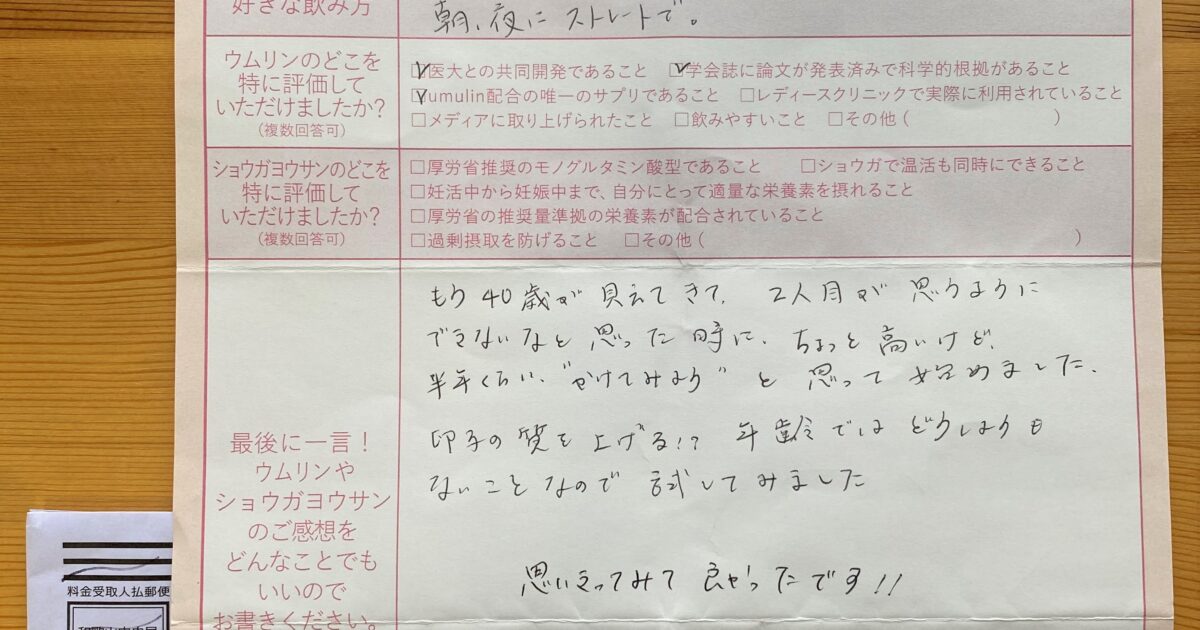 好きな飲み方
朝、夜に ストレートで。
ウムリンのどこを
特に評価して
いただけましたか?
(複数回答可)
☑医大との共同開発であること ☑学会誌に論文が発表済みで科学的根拠があること
☑umulin配合の唯一のサプリであること □レディースクリニックで実際に利用されていること
□メディアに取り上げられたこと □飲みやすいこと □その他( )
ショウガヨウサンのどこを
特に評価して
いただけましたか?
(複数回答可)
□厚労省推奨のモノグルタミン酸型であること □ショウガで温活も同時にできること
□妊活中から妊娠中まで、自分にとって適量な栄養素を摂れること
□厚労省の推奨量準拠の栄養素が配合されていること
□過剰摂取を防げること □その他( )
最後に一言!
ウムリンや
ショウガヨウサン
のご感想を
どんなことでも
いいので
お書きください。
もう40歳が見えてきて、2人目が思うように
できないなと思った時に、ちょっと高いけど、
半年くらい、"かけてみよう"と思って始めました。
卵子の質を上げる!?年齢ではどうしようも
ないことなので試してみました
思い立ってみて良かったです!!
料金受取人払郵便